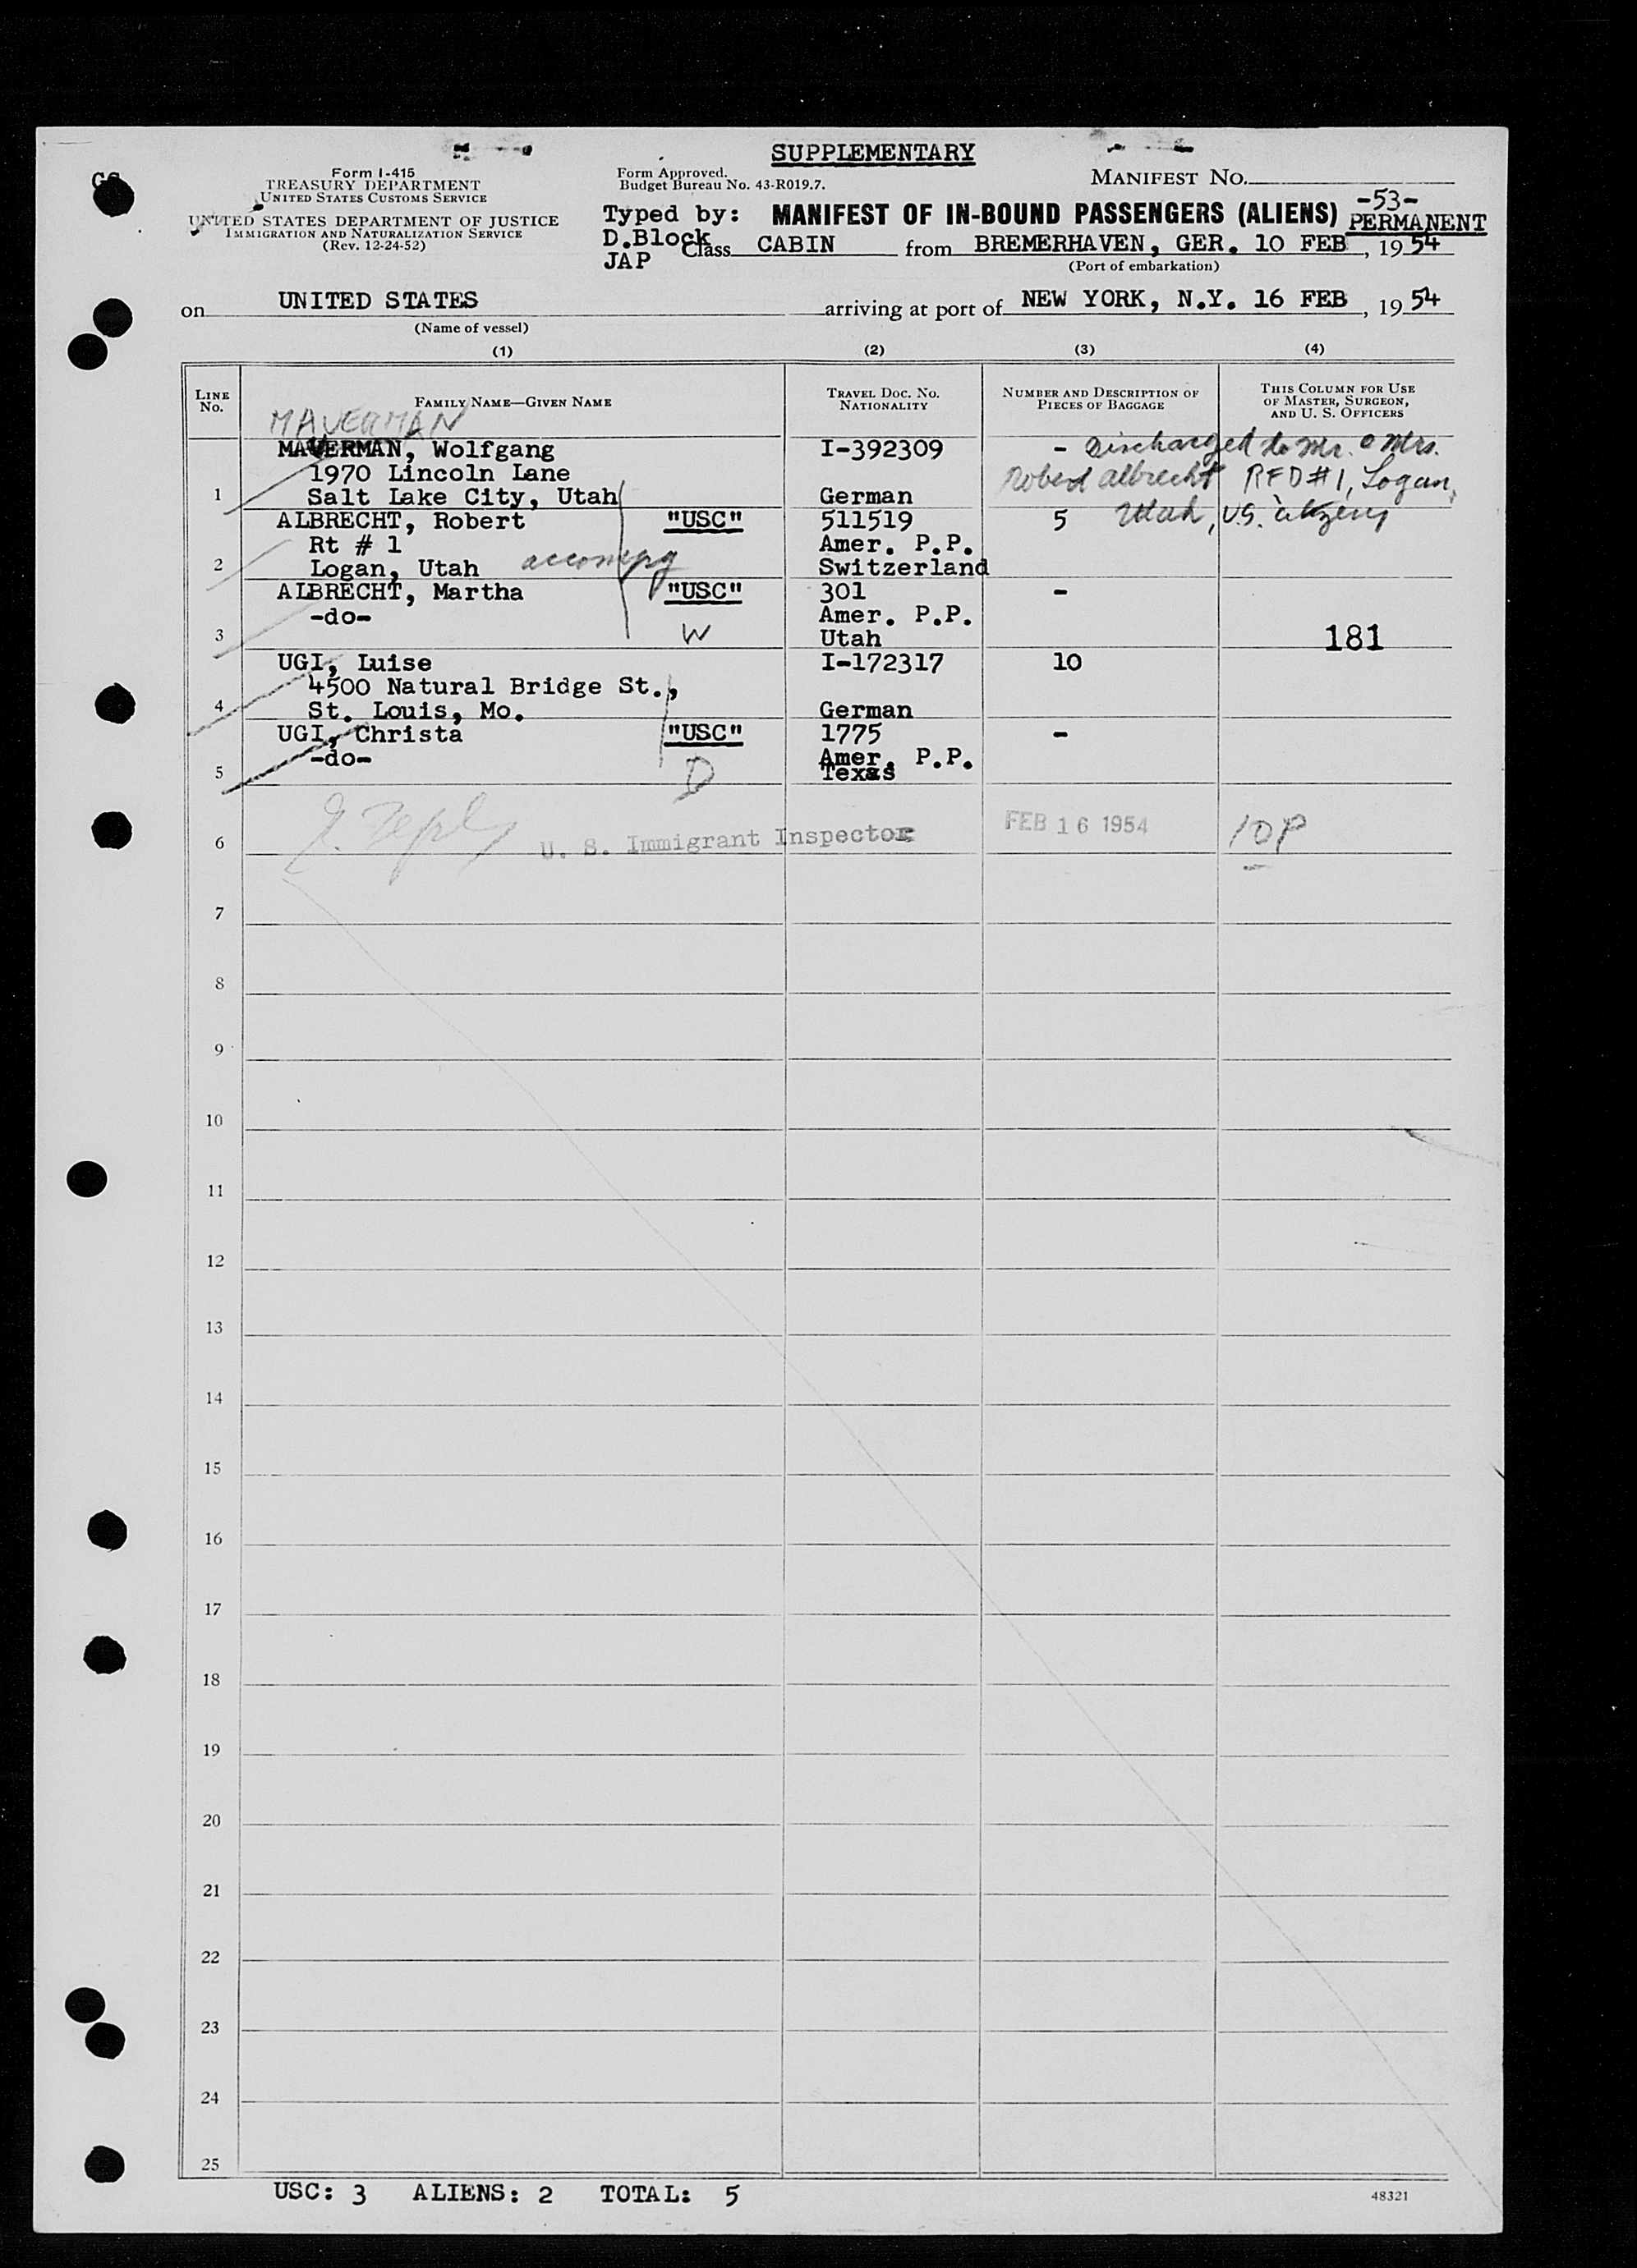 SUPPLEMENTARY
Form I-415
TREASURY DEPARTMENT
UNITED STATES CUSTOMS SERVICE
UNITED STATES DEPARTMENT OF JUSTICE
IMMIGRATION AND NATURALIZATION SERVICE
(Rev. 12-24-52)
Form Approved.
Budget Bureau No. 43-R019.7.
MANIFEST No.
-53-
PERMANENT
Typed by:
D.Block
JAP
MANIFEST OF IN-BOUND PASSENGERS (ALIENS)
Class CABIN from BREMERHAVEN, GER. 10 FEB, 1954
(Port of embarkation)
on UNITED STATES arriving at port of NEW YORK, N.Y. 16 FEB, 1954
(Name of vessel)
(1) (2) (3) (4)
LINE No.
FAMILY NAME—GIVEN NAME
TRAVEL DOC. NO. NATIONALITY
NUMBER AND DESCRIPTION OF PIECES OF BAGGAGE
THIS COLUMN FOR USE OF MASTER, SURGEON, AND U. S. OFFICERS
MAVERMAN
MAVERMAN, Wolfgang I-392309 - Discharged to Mr. & Mrs.
1970 Lincoln Lane Robert Albrecht RFD #1, Logan,
1 Salt Lake City, Utah German
ALBRECHT, Robert "USC" 511519 5 Utah, U.S. citizens
Rt # 1 Amer. P.P.
2 Logan, Utah accompg Switzerland
ALBRECHT, Martha "USC" 301 -
-do- Amer. P.P.
3 W Utah 181
UGI, Luise I-172317 10
4500 Natural Bridge St.,
4 St. Louis, Mo. German
UGI, Christa "USC" 1775 -
-do- Amer. P.P.
5 D Texas
6 U. S. Immigrant Inspector FEB 16 1954 10P
7
8
9
10
11
12
13
14
15
16
17
18
19
20
21
22
23
24
25
USC: 3 ALIENS: 2 TOTAL: 5
48321